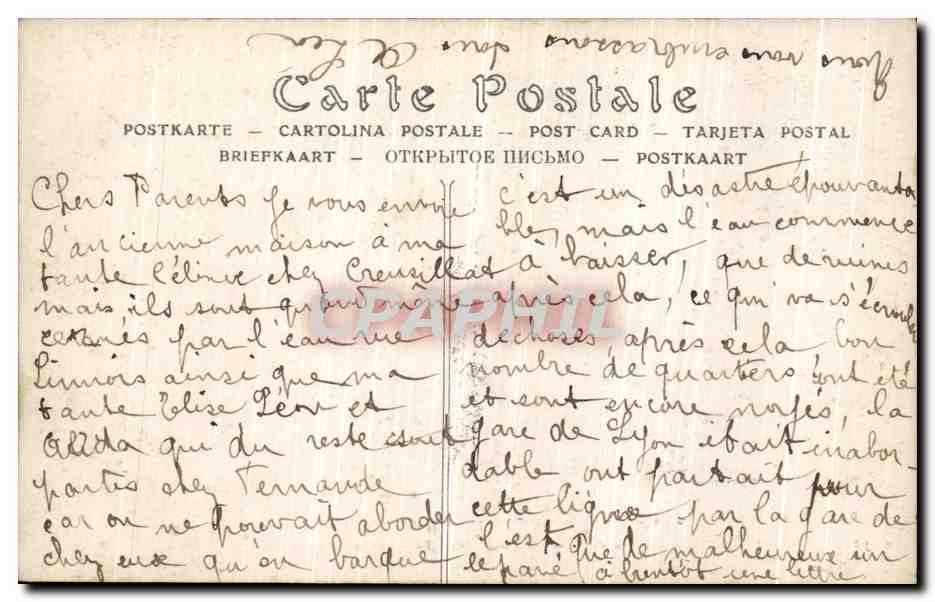 Nous vous embrassons tous A Léon
Carte Postale
POSTKARTE — CARTOLINA POSTALE — POST CARD — TARJETA POSTAL
BRIEFKAART — ОТКРЫТОЕ ПИСЬМО — POSTKAART
Chers Parents je vous envoie
l'ancienne maison à ma
tante Céline chez Creusillat
mais ils sont quand même
cernés par l'eau rue
ainsi que ma
tante Elise Léon et
qui du reste sont
partis chez Fernande
car on ne pouvait aborder
chez eux qu'on barque
c'est un désastre épouvanta
ble, mais l'eau commence
à baisser, que de ruines
après cela, ce qui va s'écrouler
de choses, après cela, bon
nombre de quartiers ont été
et sont encore noyés, la
gare de Lyon était inabor-
dable ont partait pour
cette ligne par la gare de
l'est, que de malheureux un
le pavé à bientôt une lettre
CPAPHIL